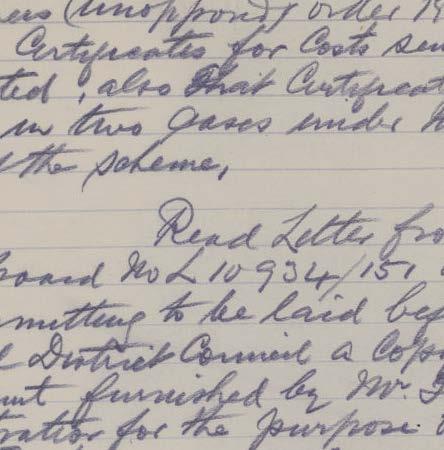 (unopposed) order
Certificates for Costs
ted, also that Certificat
in two Cases under
the scheme,
Read Letter fro
Board No L 10934/151
mitting to be laid bef
District Council a Cop
furnished by Mr.
trator for the purpose